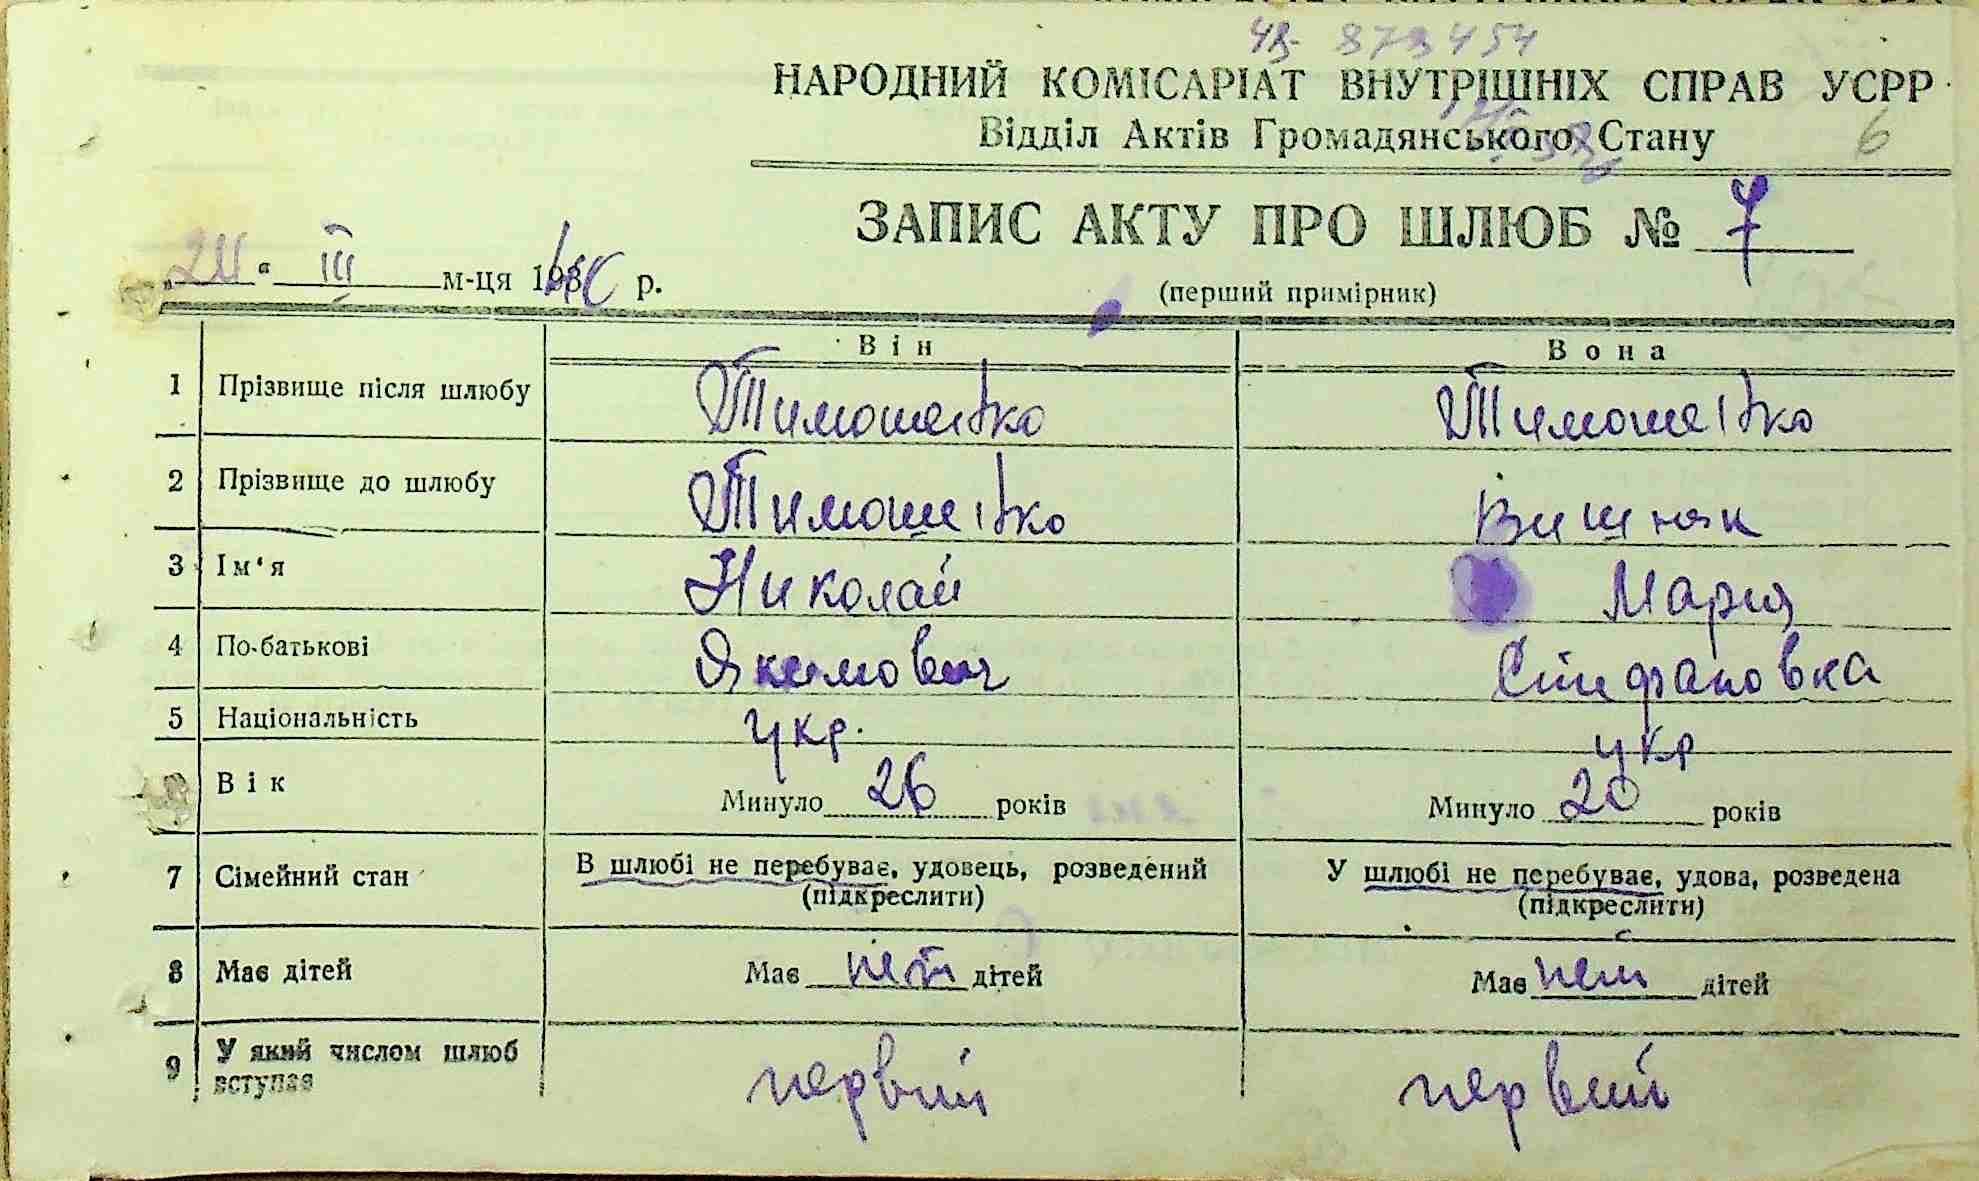 ЧЯ- 873454
НАРОДНИЙ КОМІСАРІАТ ВНУТРІШНІХ СПРАВ УСРР
Відділ Актів Громадянського Стану 6
ЗАПИС АКТУ ПРО ШЛЮБ № 7
„24“ III м-ця 1940 р.
(перший примірник)
Він Вона
1 Прізвище після шлюбу Тимошенко Тимошенко
2 Прізвище до шлюбу Тимошенко Вишняк
3 Ім‘я Николай Мария
4 По-батькові Якимович Стифановка
5 Національність укр. укр
Вік Минуло 26 років Минуло 20 років
7 Сімейний стан В шлюбі не перебуває, удовець, розведений У шлюбі не перебуває, удова, розведена
(підкреслити) (підкреслити)
8 Має дітей Має нет дітей Має нет дітей
9 У який числом шлюб вступає первий первий